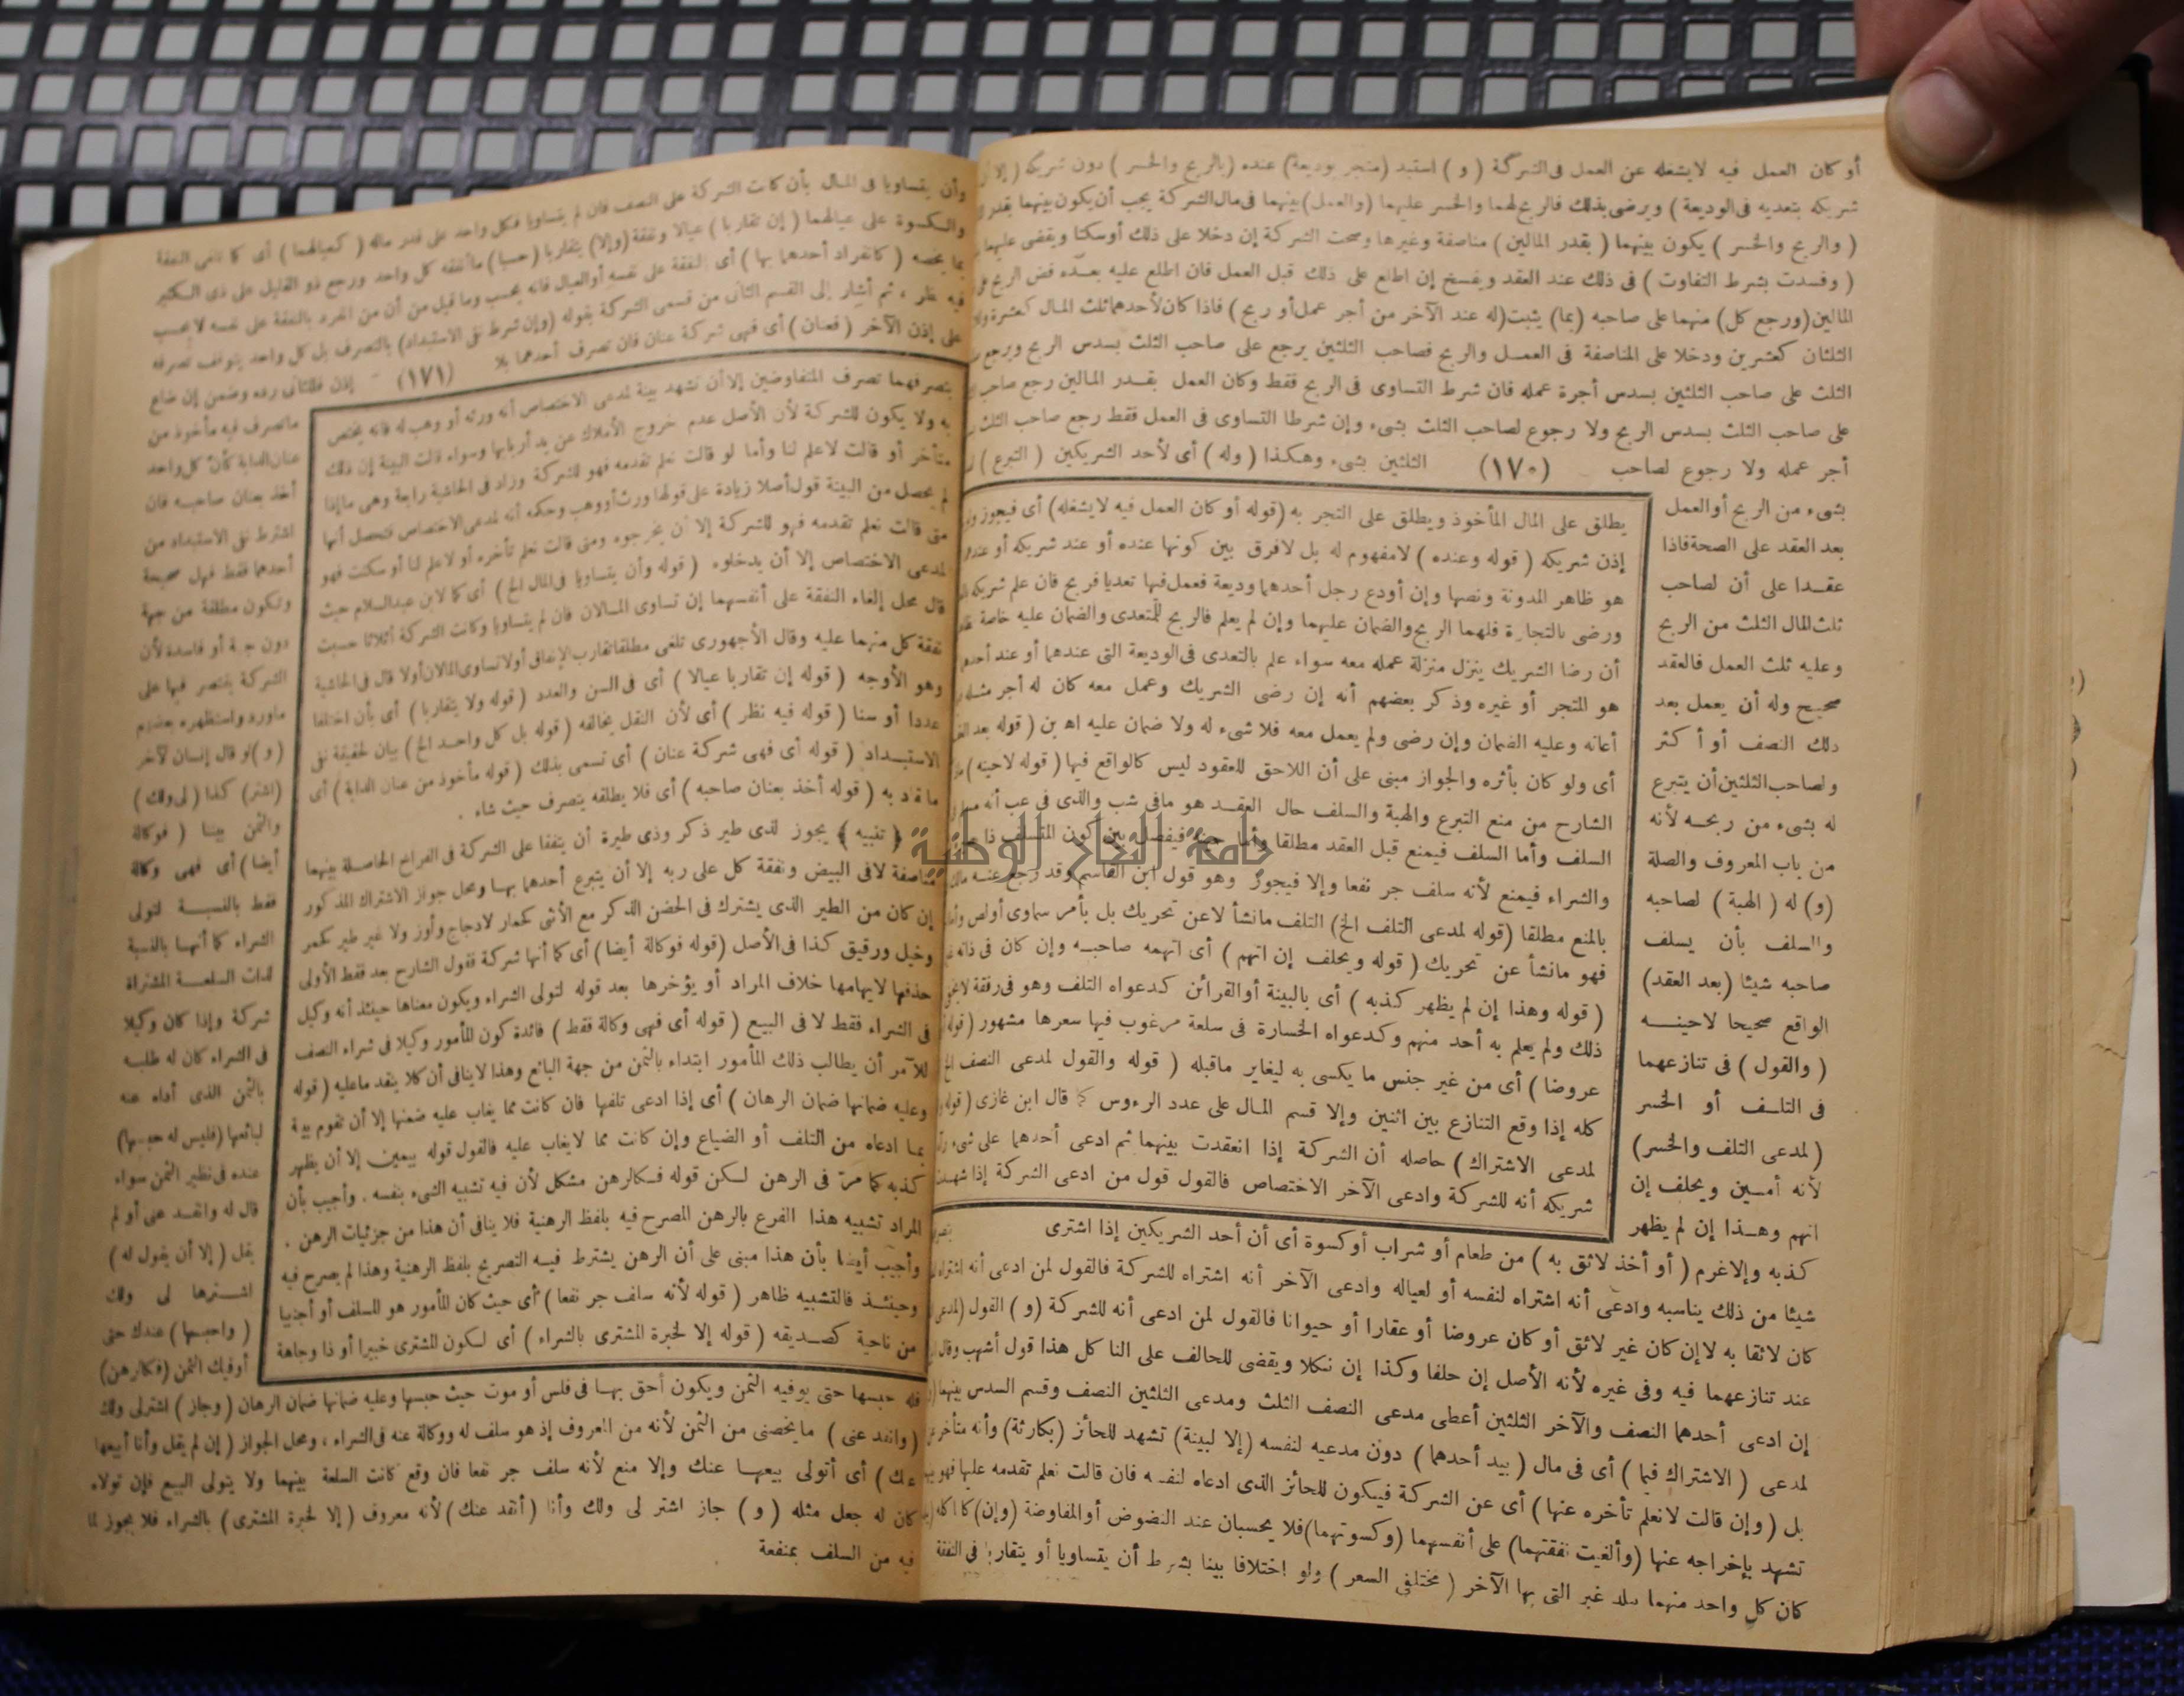 أو كان العمل فيه لايشغله عن العمل فى الشركة ( و ) استبد (متجر بوديعة) عنده (بالربح والخسر ) دون شريكه ( إلا أن
شريكه بتعديه فى الوديعة ) ويرضى بذلك فالربح لهما والخسر عليهما (والعمل) بينهما فى مال الشركة يجب أن يكون بينهما بقدر
( والربح والخسر ) يكون بينهما ( بقدر المالين ) مناصفة وغيرها وصحت الشركة إن دخلا على ذلك أو سكتا ويقضى عليهما
( وفسدت بشرط التفاوت ) فى ذلك عند العقد ويفسخ إن اطلع على ذلك قبل العمل فان اطلع عليه بعده فض الربح على
المالين (ورجع كل) منهما على صاحبه (بما) يثبت (له عند الآخر من أجر عمل أو ربح ) فاذا كان لأحدهما ثلث المال كعشرة
الثلثان كعشرين ودخلا على المناصفة فى العمل والربح فصاحب الثلثين يرجع على صاحب الثلث بسدس الربح ويرجع
الثلث على صاحب الثلثين بسدس أجرة عمله فان شرط التساوى فى الربح فقط وكان العمل بقدر المالين رجع صاحب
على صاحب الثلث بسدس الربح ولا رجوع لصاحب الثلث بشىء وإن شرطا التساوى فى العمل فقط رجع صاحب الثلث
أجر عمله ولا رجوع لصاحب (١٧٠) الثلثين بشىء وهكذا ( وله ) أى لأحد الشريكين ( التبرع )
بشىء من الربح أو العمل
بعد العقد على الصحة فاذا
عقدا على أن لصاحب
ثلث المال الثلث من الربح
وعليه ثلث العمل فالعقد
صحيح وله أن يعمل بعد
ذلك النصف أو أكثر
ولصاحب الثلثين أن يتبرع
له بشىء من ربحه لأنه
من باب المعروف والصلة
(و) له ( الهبة ) لصاحبه
والسلف بأن يسلف
صاحبه شيئا (بعد العقد)
الواقع صحيحا لاحينه
( والقول ) فى تنازعهما
فى التلف أو الخسر
(لمدعى التلف والخسر)
لأنه أمين ويحلف إن
اتهم وهذا إن لم يظهر
يطلق على المال المأخوذ ويطلق على التجر به (قوله أو كان العمل فيه لايشغله) أى فيجوز
إذن شريكه ( قوله وعنده ) لامفهوم له بل لافرق بين كونها عنده أو عند شريكه أو عندهما
هو ظاهر المدونة ونصها وإن أودع رجل أحدهما وديعة فعمل فيها تعديا فربح فان علم شريكه
ورضى بالتجارة فلهما الربح والضمان عليهما وإن لم يعلم فالربح للمتعدى والضمان عليه خاصة
أن رضا الشريك ينزل منزلة عمله معه سواء علم بالتعدى فى الوديعة التى عندهما أو عند أحدهما
هو المتجر أو غيره وذكر بعضهم أنه إن رضى الشريك وعمل معه كان له أجر مثله
أعانه وعليه الضمان وإن رضى ولم يعمل معه فلا شىء له ولا ضمان عليه اه بن ( قوله بعد
أى ولو كان بأثره والجواز مبنى على أن اللاحق للعقود ليس كالواقع فيها ( قوله لاحينه )
الشارح من منع التبرع والهبة والسلف حال العقد هو مافى شب والذى فى عب أنه
السلف وأما السلف فيمنع قبل العقد مطلقا وأما حينه فيفصل بين كون المتسلف ذا
والشراء فيمنع لأنه سلف جر نفعا وإلا فيجوز وهو قول ابن القاسم وقد رجع عنه مالك
بالمنع مطلقا (قوله لمدعى التلف الخ) التلف مانشأ لاعن تحريك بل بأمر سماوى أو لص
فهو مانشأ عن تحريك ( قوله ويحلف إن اتهم ) أى اتهمه صاحبه وإن كان فى ذاته
( قوله وهذا إن لم يظهر كذبه ) أى بالبينة أو القرائن كدعواه التلف وهو فى رفقة لايخفى
ذلك ولم يعلم به أحد منهم وكدعواه الخسارة فى سلعة مرغوب فيها سعرها مشهور ( قوله
عروضا ) أى من غير جنس ما يكسى به ليغاير ماقبله ( قوله والقول لمدعى النصف الخ
كله إذا وقع التنازع بين اثنين وإلا قسم المال على عدد الرءوس كما قال ابن غازى ( قوله
لمدعى الاشتراك ) حاصله أن الشركة إذا انعقدت بينهما ثم ادعى أحدهما على شىء
شريكه أنه للشركة وادعى الآخر الاختصاص فالقول قول من ادعى الشركة إذا شهدت
كذبه وإلا غرم ( أو أخذ لائق به ) من طعام أو شراب أو كسوة أى أن أحد الشريكين إذا اشترى
شيئا من ذلك يناسبه وادعى أنه اشتراه لنفسه أو لعياله وادعى الآخر أنه اشتراه للشركة فالقول لمن ادعى أنه اشتراه
كان لائقا به لا إن كان غير لائق أو كان عروضا أو عقارا أو حيوانا فالقول لمن ادعى أنه للشركة ( و ) القول (لمدعى
عند تنازعهما فيه وفى غيره لأنه الأصل إن حلفا وكذا إن نكلا ويقضى للحالف على الناكل هذا قول أشهب وقال
إن ادعى أحدهما النصف والآخر الثلثين أعطى مدعى النصف الثلث ومدعى الثلثين النصف وقسم السدس بينهما
لمدعى ( الاشتراك فيما ) أى فى مال ( بيد أحدهما ) دون مدعيه لنفسه (إلا لبينة) تشهد للحائز (بكارثة) وأنه متأخر
بل ( وإن قالت لانعلم تأخره عنها ) أى عن الشركة فيكون للحائز الذى ادعاه لنفسه فان قالت نعلم تقدمه عليها فهو
تشهد بإخراجه عنها (وألغيت نفقتهما) على أنفسهما (وكسوتهما) فلا يحسبان عند النضوض أو المفاوضة (وإن)
كان كل واحد منهما ببلد غير التى بها الآخر ( مختلفى السعر ) ولو اختلافا بينا بشرط أن يتساويا أو يتقاربا فى النفقة
وأن يتساويا فى المال بأن كانت الشركة على النصف فان لم يتساويا فكل واحد على قدر ماله ( كعيالهما ) أى كما تلغى النفقة
والكسوة على عيالهما ( إن تقاربا ) عيالا ونفقة (وإلا) يتقاربا (حسبا) ماأنفقه كل واحد ورجع ذو القليل على ذى الكثير
بما يخصه ( كانفراد أحدهما بها ) أى النفقة على نفسه أو العيال فانه يحسب وما قيل من أن من انفرد بالنفقة على نفسه لا يحسب
فيه نظر ، ثم أشار إلى القسم الثانى من قسمى الشركة بقوله (وإن شرط نفى الاستبداد) بالتصرف بل كل واحد يتوقف تصرفه
على إذن الآخر ( فعنان ) أى فهى شركة عنان فان تصرف أحدهما بلا (١٧١) إذن فللثانى رده وضمن إن ضاع
ماتصرف فيه مأخوذ من
عنان الدابة كأن كل واحد
أخذ بعنان صاحبه فان
اشترط نفى الاستبداد من
أحدهما فقط فهل صحيحة
وتكون مطلقة من جهة
دون جهة أو فاسدة لأن
الشركة يقتصر فيها على
ماورد واستظهره بعضهم
( و ) لو قال إنسان لآخر
(اشتر) كذا (لى ولك )
والثمن بيننا ( فوكالة
أيضا ) أى فهى وكالة
فقط بالنسبة لتولى
الشراء كما أنها بالنسبة
لذات السلعة المشتراة
شركة وإذا كان وكيلا
فى الشراء كان له طلبه
بالثمن الذى أداه عنه
لبائعها (فليس له حبسها)
عنده فى نظير الثمن سواء
قال له وانقد عنى أو لم
يقل ( إلا أن يقول له )
اشترها لى ولك
( واحبسها ) عندك حتى
أوفيك الثمن (فكالرهن)
يتصرفهما تصرف المتفاوضين إلا أن تشهد بينة لمدعى الاختصاص أنه ورثه أو وهب له فانه يختص
به ولا يكون للشركة لأن الأصل عدم خروج الأملاك عن يد أربابها وسواء قالت البينة إن ذلك
متأخر أو قالت لاعلم لنا وأما لو قالت نعلم تقدمه فهو للشركة وزاد فى الحاشية رابعة وهى ما إذا
لم يحصل من البينة قول أصلا زيادة على قولها ورث أو وهب وحكمه أنه لمدعى الاختصاص فتحصل أنها
متى قالت نعلم تقدمه فهو للشركة إلا أن يخرجوه ومتى قالت نعلم تأخره أو لاعلم لنا أو سكتت فهو
لمدعى الاختصاص إلا أن يدخلوه ( قوله وأن يتساويا فى المال الخ ) أى كما لابن عبدالسلام حيث
قال محل إلغاء النفقة على أنفسهما إن تساوى المالان فان لم يتساويا وكانت الشركة أثلاثا حسبت
نفقة كل منهما عليه وقال الأجهورى تلغى مطلقا تقارب الإنفاق أولا تساوى المالان أولا قال فى الحاشية
وهو الأوجه ( قوله إن تقاربا عيالا ) أى فى السن والعدد ( قوله ولا يتقاربا ) أى بأن اختلفا
عددا أو سنا ( قوله فيه نظر ) أى لأن النقل يخالفه ( قوله بل كل واحد الخ ) بيان لحقيقة نفى
الاستبداد ( قوله أى فهى شركة عنان ) أى تسمى بذلك ( قوله مأخوذ من عنان الدابة ) أى
ماتقاد به ( قوله أخذ بعنان صاحبه ) أى فلا يطلقه يتصرف حيث شاء .
﴿ تنبيه ﴾ يجوز لذى طير ذكر وذى طيرة أن يتفقا على الشركة فى الفراخ الحاصلة بينهما
مناصفة لافى البيض ونفقة كل على ربه إلا أن يتبرع أحدهما بها ومحل جواز الاشتراك المذكور
إن كان من الطير الذى يشترك فى الحضن الذكر مع الأنثى كحمام لادجاج وأوز ولا غير طير كحمر
وخيل ورقيق كذا فى الأصل (قوله فوكالة أيضا ) أى كما أنها شركة فقول الشارح بعد فقط الأولى
حذفها لايهامها خلاف المراد أو يؤخرها بعد قوله لتولى الشراء ويكون معناها حينئذ أنه وكيل
فى الشراء فقط لا فى البيع ( قوله أى فهى وكالة فقط ) فائدة كون المأمور وكيلا فى شراء النصف
للآمر أن يطالب ذلك المأمور ابتداء بالثمن من جهة البائع وهذا لاينافى أن كلا ينقد ماعليه ( قوله
وعليه ضمانها ضمان الرهان ) أى إذا ادعى تلفها فان كانت مما يغاب عليه ضمنها إلا أن تقوم بينة
بما ادعاه من التلف أو الضياع وإن كانت مما لايغاب عليه فالقول قوله بيمين إلا أن يظهر
كذبه كما مر فى الرهن لكن قوله فكالرهن مشكل لأن فيه تشبيه الشىء بنفسه . وأجيب بأن
المراد تشبيه هذا الفرع بالرهن المصرح فيه بلفظ الرهنية فلا ينافى أن هذا من جزئيات الرهن .
وأجيب أيضا بأن هذا مبنى على أن الرهن يشترط فيه التصريح بلفظ الرهنية وهذا لم يصرح فيه
وحينئذ فالتشبيه ظاهر ( قوله لأنه سلف جر نفعا ) أى حيث كان المأمور هو المسلف أو أجنبيا
من ناحية كصديقه ( قوله إلا لخبرة المشترى بالشراء ) أى لكون المشترى خبيرا أو ذا وجاهة
فله حبسها حتى يوفيه الثمن ويكون أحق بها فى فلس أو موت حيث حبسها وعليه ضمانها ضمان الرهان ( وجاز ) اشتر لى ولك
( وانقد عنى ) مايخصنى من الثمن لأنه من المعروف إذ هو سلف له ووكالة عنه فى الشراء ، ومحل الجواز ( إن لم يقل وأنا أبيعها
عنك ) أى أتولى بيعها عنك وإلا منع لأنه سلف جر نفعا فان وقع كانت السلعة بينهما ولا يتولى البيع فإن تولاه
كان له جعل مثله ( و ) جاز اشتر لى ولك وأنا ( أنقد عنك ) لأنه معروف ( إلا لخبرة المشترى ) بالشراء فلا يجوز لما
فيه من السلف بمنفعة
جامعة النجاح الوطنية